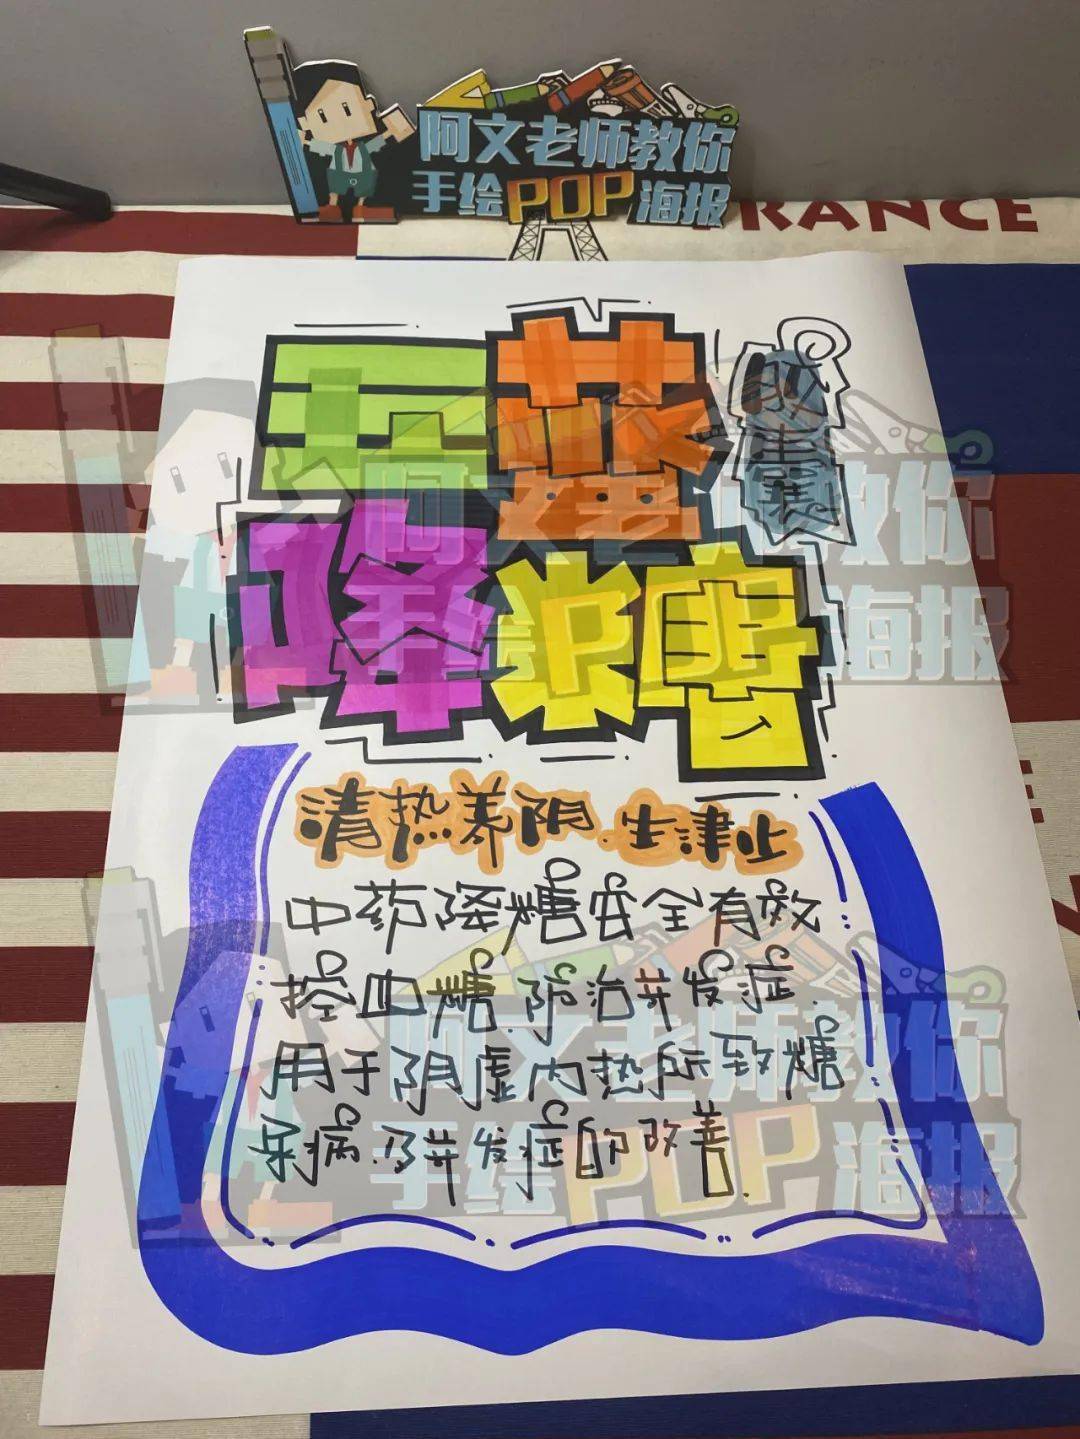 阿文老师教你
手绘POP海报
FRANCE
降糖
胶囊
清热养阴.生津止
中药降糖安全有效
控血糖.防治并发症.
用于阴虚内热所致糖
尿病.及并发症的改善.
阿文老师教你
手绘POP海报
阿文老师教你
手绘POP海报